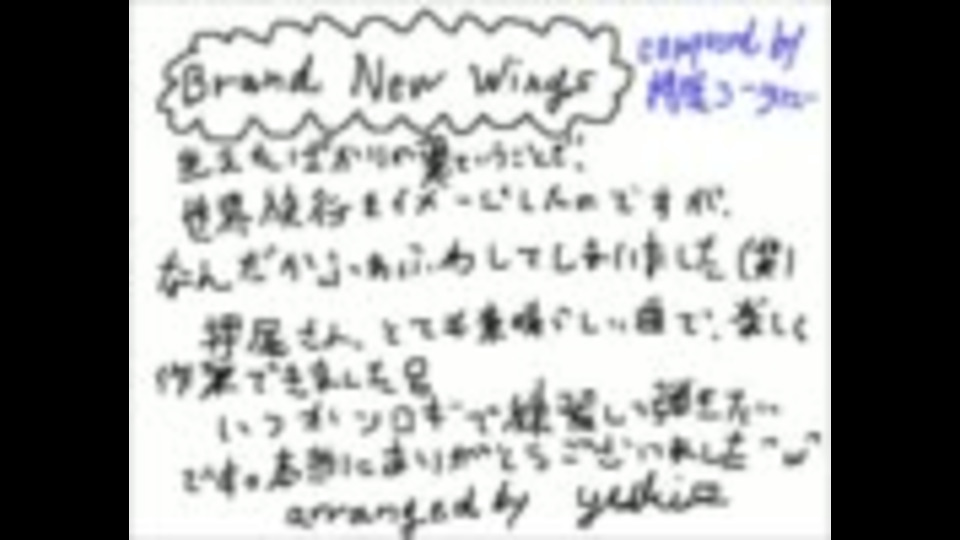 Brand New Wings
composed by 押尾コータロー
生えたばかりの翼ということで、
世界旅行をイメージしたのですが、
なんだかふわふわしてしまいました(笑)
押尾さん、とても素晴らしい曲で、楽しく
作業できました
いつかソロギで練習し弾きたい
です。本当にありがとうございました^ω^
arranged by